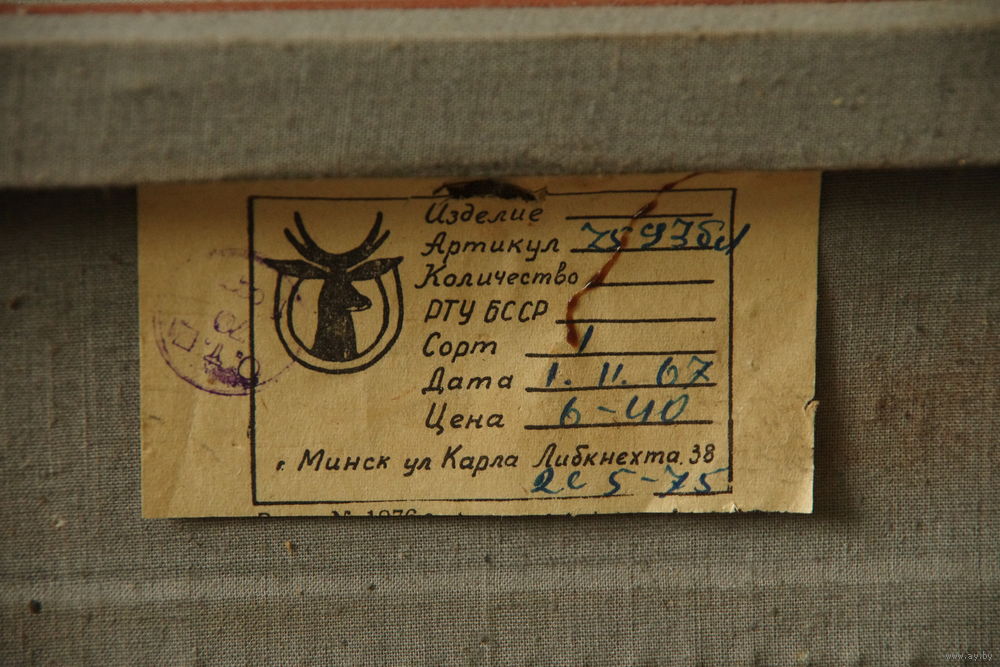 Изделие
Артикул 7593бел
Количество
РТУ БССР
Сорт 1
Дата 1. 11. 67
Цена 6-40
г. Минск ул Карла Либкнехта, 38
2с 5-75
ОТК
www.ay.by